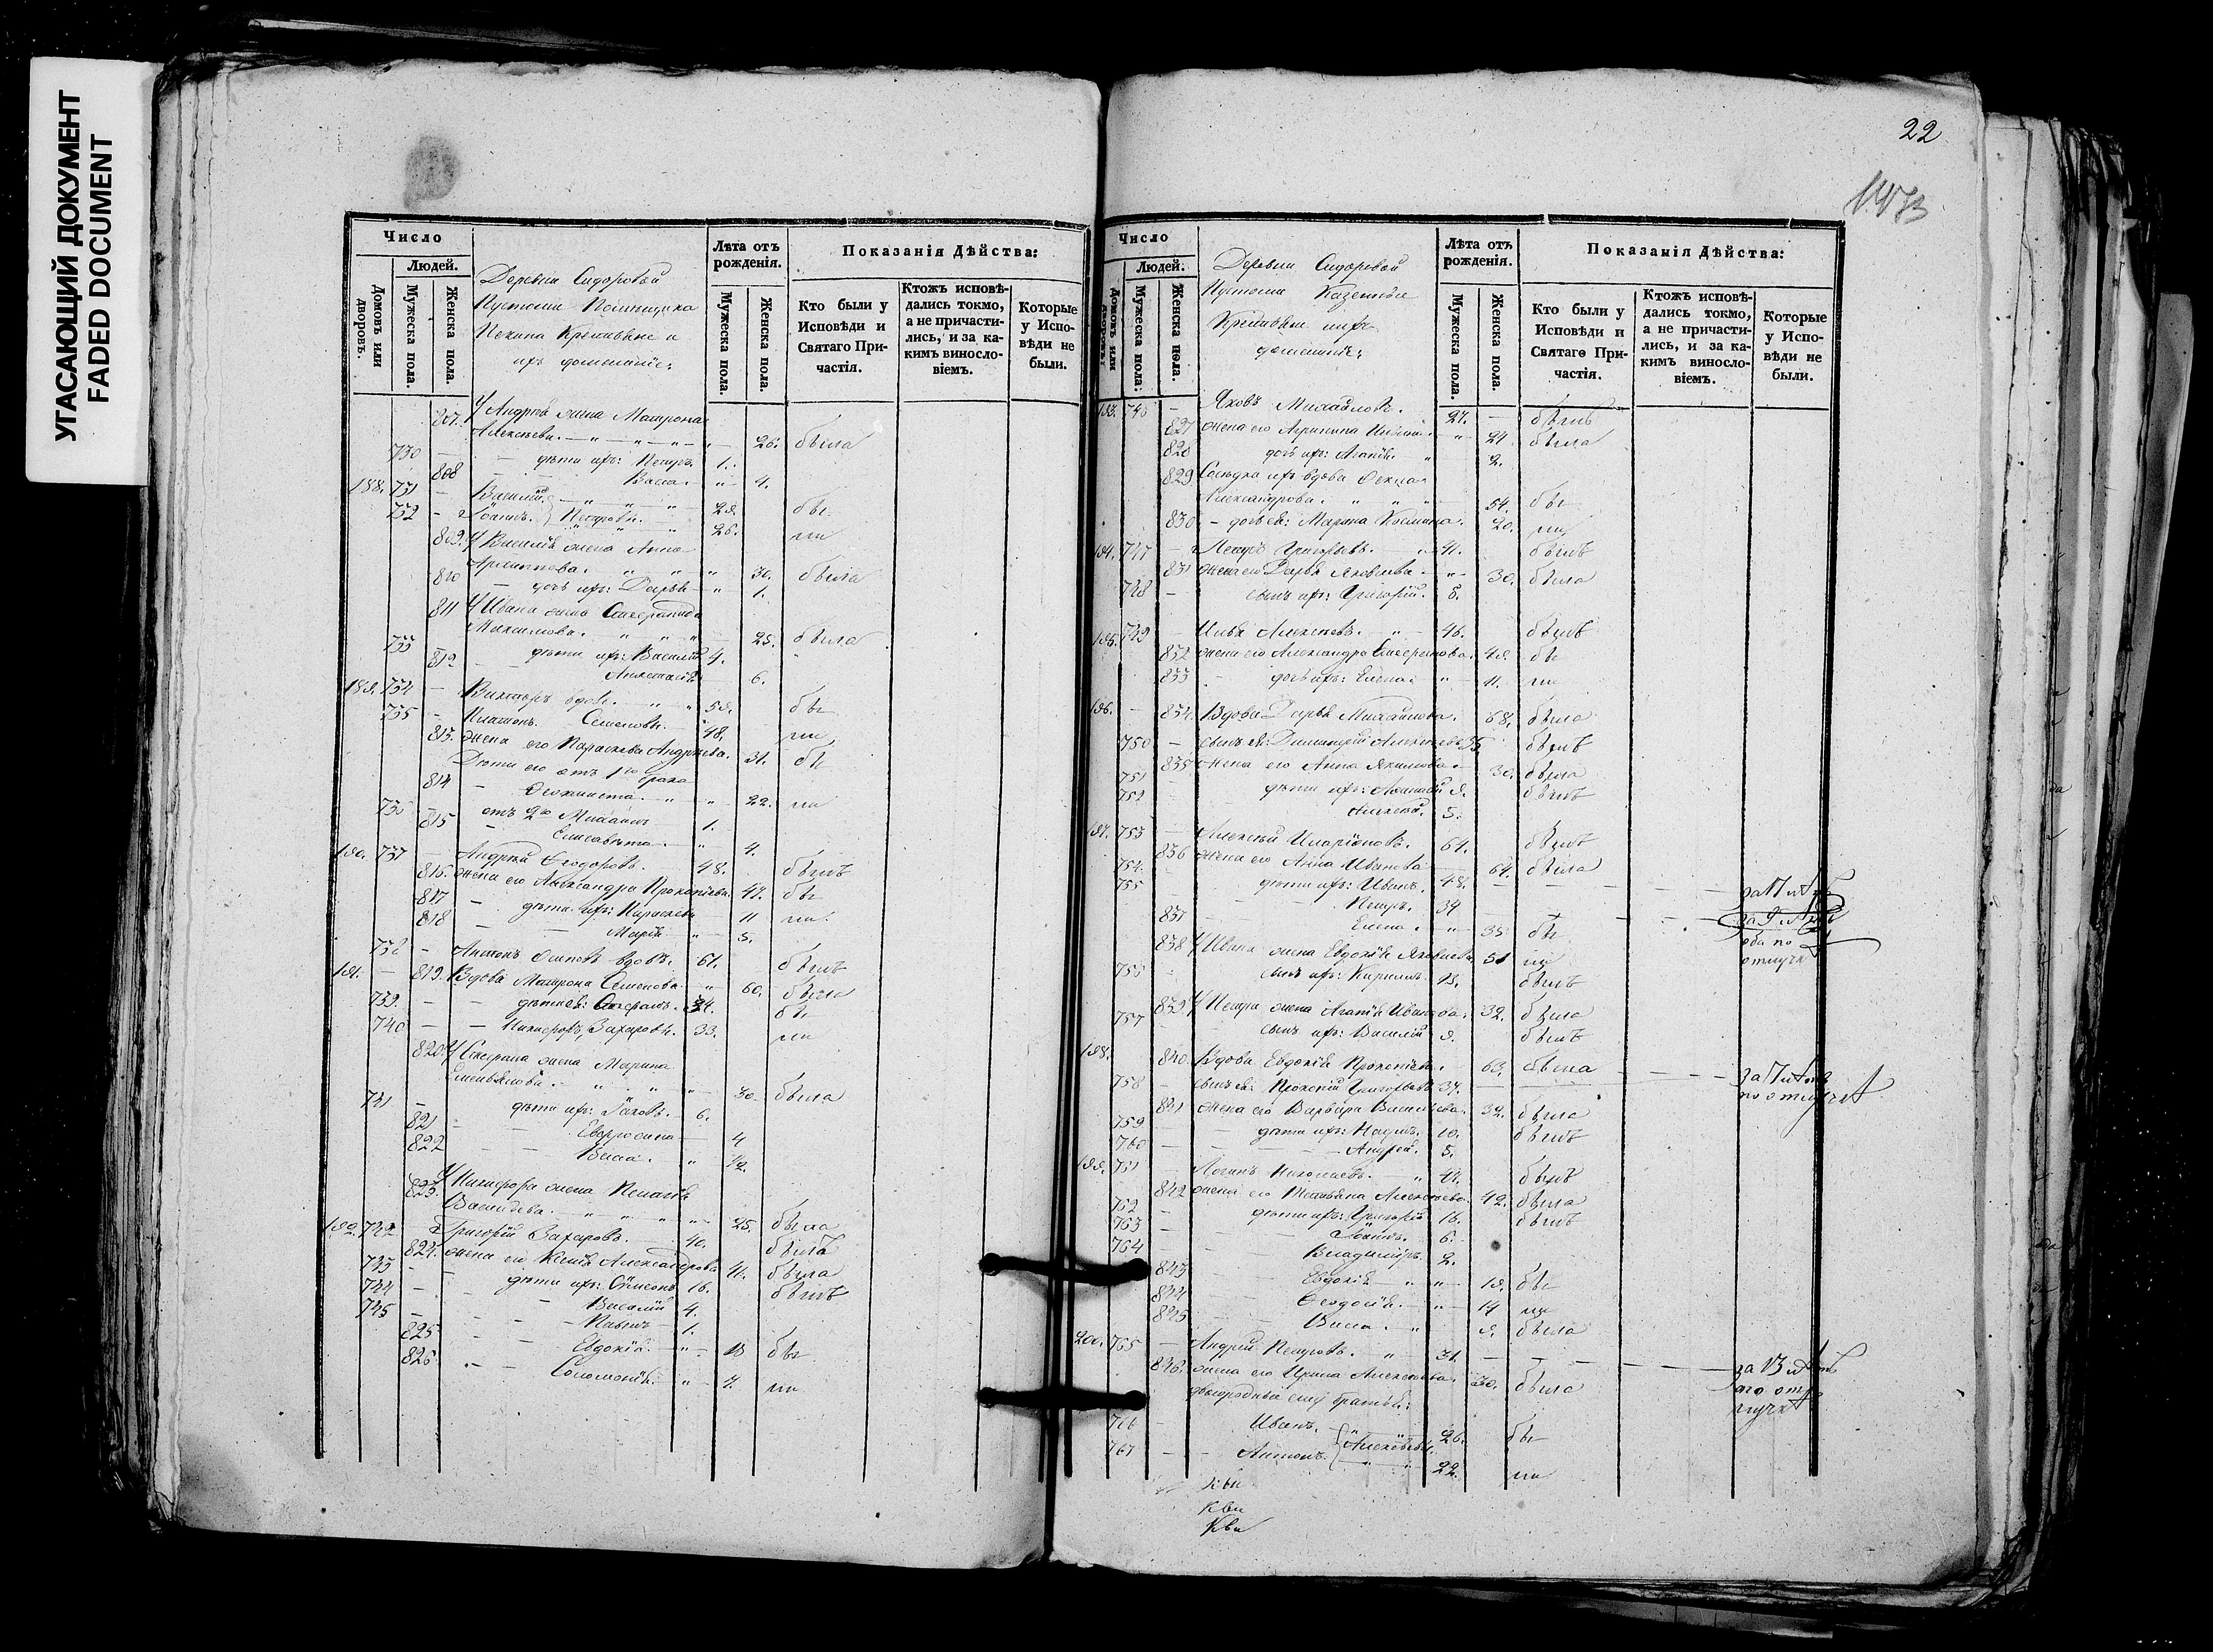 УГАСАЮЩИЙ ДОКУМЕНТ
FADED DOCUMENT
Число
Людей.
Домовъ или дворовъ.
Мужеска пола.
Женска пола.
Деревни Сидоровой
Пустоши Помѣщика
Крестьяне и
ихъ домашніе:
Лѣта отъ рожденія.
Мужеска пола.
Женска пола.
Показанія Дѣйства:
Кто были у Исповѣди и Святаго При-частія.
Ктожъ исповѣ-дались токмо, а не причасти-лись, и за ка-кимъ винносло-віемъ.
Которые у Испо-вѣди не были.
807. У Андрея жена Матрона
Алексѣева. 26. была
730 дѣти ихъ: Петръ. 1.
808 Васса. 4.
188. 731 Василій
732 Іоаннъ. Петровы. 26.
809. У Василія жена Анна
30. была
810 дочь ихъ: Дарья 1.
811 У Ивана жена Стефанида
Максимова. 25. была
733 дѣти ихъ: Василій 4.
812 Анастасія 6.
189. 734 Викторъ вдов. бы
735 Платонъ Семеновы. 48. ли
813. жена его Параскева Андреева. 31. бы
Дѣти его отъ 1го брака
814 Ѳеоктиста 22. ли
736 отъ 2го Михаилъ 1.
815 Елисавета 4.
190. 737 Андрей Ѳеодоровъ. 48. былъ
816. жена его Александра Прокопіева. 47. бы
817 дѣти ихъ: Параскева 11 ли.
818 Марія 5.
738 Антонъ Осиповъ вдовъ. 61. былъ
191. 819. Вдова Матрона Семенова 60. была
739. дѣти ея: Стефанъ. 34. бы
740 Никифоръ Захаровы. 33. ли
820. У Стефана жена Марина
Емельянова. 30. была
741 дѣти ихъ: Іаковъ. 6.
821 Евфросина 4
822 Васса. 1/2
823. У Никифора жена Пелагія
Васильева 25. была
192. 742 Григорій Захаровъ. 40. былъ
824. жена его Ксенія Александрова 41. была
743 дѣти ихъ: Симеонъ 16. былъ
744 Василій 4.
745 Павелъ 1.
825 Евдокія 13 бы
826 Соломонія. 7. ли
22
Число
Людей.
Домовъ или дворовъ.
Мужеска пола.
Женска пола.
Деревни Сидоровой
Пустоши Казенные
Крестьяне ихъ
домашніе:
Лѣта отъ рожденія.
Мужеска пола.
Женска пола.
Показанія Дѣйства:
Кто были у Исповѣди и Святаго При-частія.
Ктожъ исповѣ-дались токмо, а не причасти-лись, и за ка-кимъ винносло-віемъ.
Которые у Испо-вѣди не были.
193. 746 Яковъ Михайловъ. 27. былъ
827 жена его Агрипина 24 была
828 дочь ихъ: Агафія 2.
829 Сосѣдка ихъ вдова Ѳекла
Александрова. 54. бы
830 дочь ея: Марина Козмина. 20. ли
194. 747 Петръ Григорьевъ. 41. былъ
831 жена его Дарья Яковлева 30. была
748 сынъ ихъ: Григорій. 8.
195. 749 Илья Алексѣевъ. 46. былъ
832 жена его Александра Стефанова. бы
833 дочь ихъ: Елена. 11. ли
196. 834. Вдова Дарья Михайлова. 68. была
750 сынъ ея: Димитрій Алексѣевъ 35. былъ
835 жена его Анна Якимова 30. была
751 дѣти ихъ: Аѳанасій 9. былъ
752 Алексѣй. 5.
197. 753 Алексѣй Иларіоновъ. 64. былъ
836 жена его Анна Иванова 64. была
754. дѣти ихъ: Иванъ. 48.
755 Петръ. 39
оба по
отлучкѣ
837 Елена. 35 бы
838 У Ивана жена Евдокія Яковлева 51 ли
756 сынъ ихъ: Кириллъ. 13. былъ
839 У Петра жена Агафія Иванова. 32. была
757 сынъ ихъ: Василій 9. былъ
198. 840. Вдова Евдокія Прокопіева. 63. была
758 сынъ ея: Прокопій Григорьевъ 37.
по отлучкѣ
841 жена его Варвара Васильева. 32. была
759 дѣти ихъ: 10. былъ
760 Андрей. 5.
199. 761 Логинъ Николаевъ. былъ
842 жена его Татьяна Алексѣева. 42. была
762 дѣти ихъ: Григорій 16. былъ
763 Іоаннъ. 6.
764 Владиміръ. 2.
843 Евдокія 19. бы
844 Ѳеодосія. 14 ли
845 Васса. 9. была
200. 765 Андрей Петровъ. 31.
за 13 лѣтъ
по от-
лучкѣ
846. жена его Ирина Алексѣева. 30. была
двоюродные ему братья:
766 Иванъ. 26. бы
767 Антонъ. Алексѣевы. 22. ли
Кви
Кви
Кви